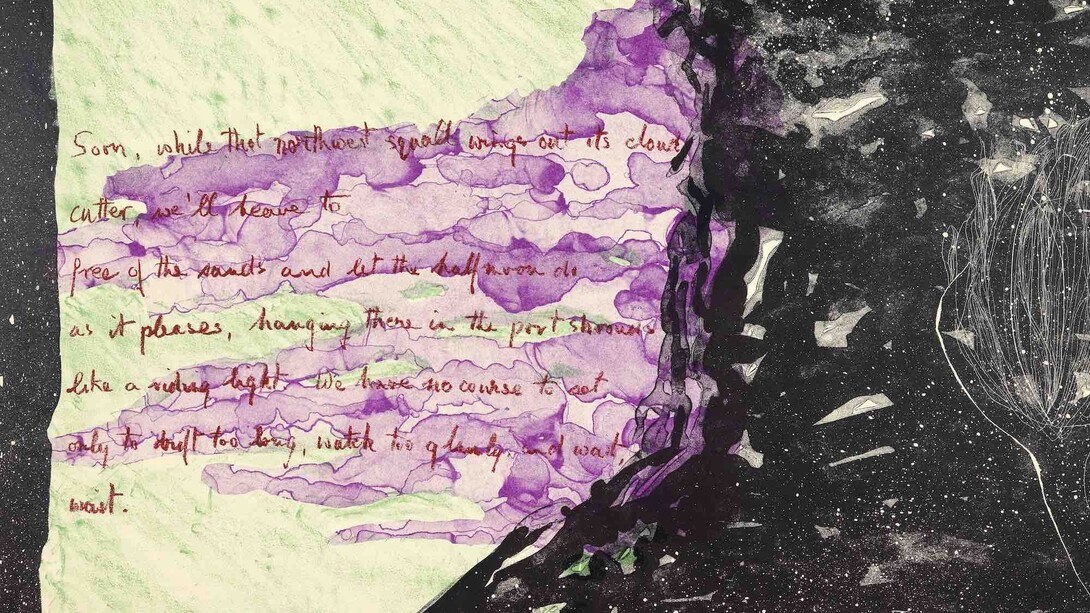 Soon, while that northwest squall wrings out its cloud
cutter, we'll heave to
free of the sands and let the half moon do
as it pleases, hanging there in the port shrouds
like a riding light. We have no course to set
only to drift too long, watch too glumly, and wait,
wait.